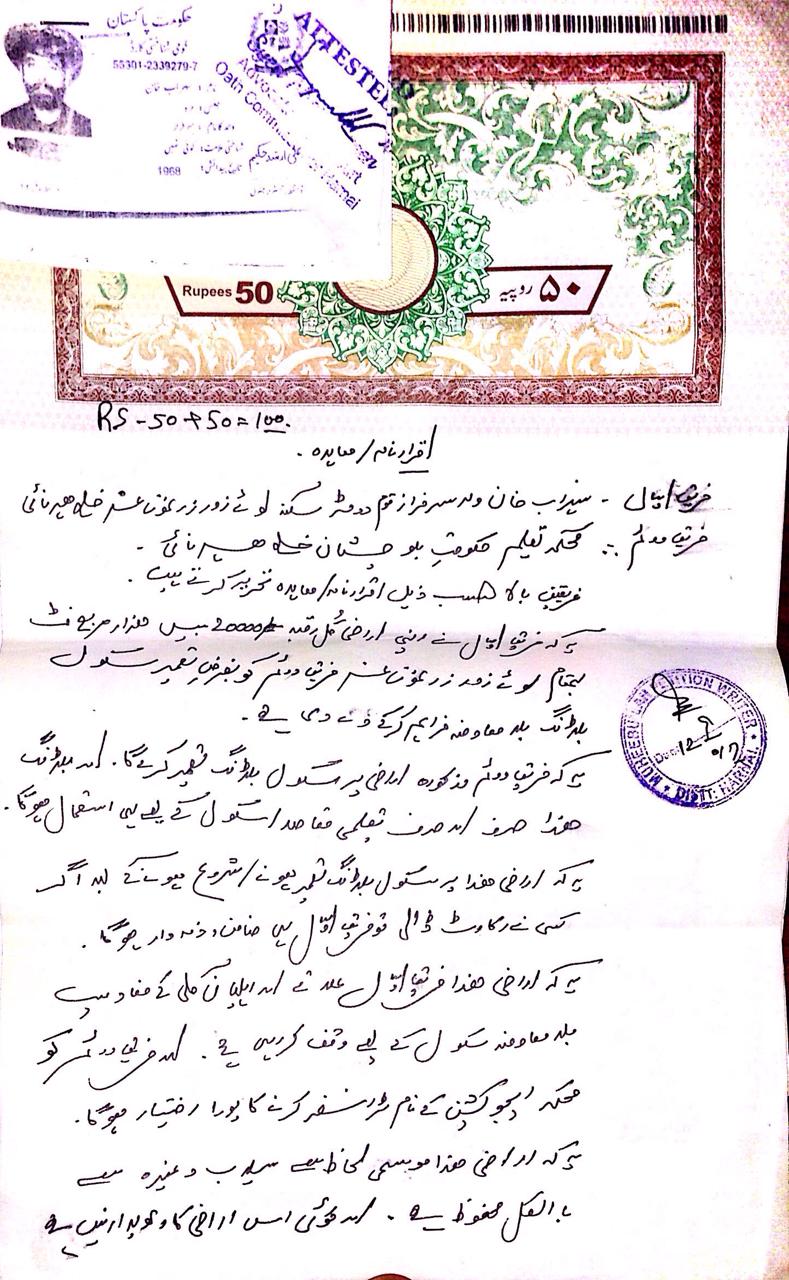 حکومت پاکستان
قومی شناختی کارڈ
55301-2339279-7
1968
ATTESTED
Oath Commissioner
Rupees 50
۵۰ روپیہ
RS - 50+50=100.
اقرارنامہ/معاہدہ۔
فریق اول - سیراب خان ولد سرفراز قوم دومڑ سکنہ لوئے زور زرغون عشر ضلع ہرنائی
فریق دوئم :- محکمہ تعلیم حکومت بلوچستان ضلع ہرنائی -
فریقین بالا حسب ذیل اقرارنامہ/معاہدہ تحریر کرتے ہیں۔
یہ کہ فریق اول نے اپنی اراضی کُل رقبہ 20000 بیس ہزار مربع فٹ
بمقام لوئے زور زرغون عشر فریق دوئم کو بغرض تعمیر سکول
بلڈنگ بلا معاوضہ فراہم کر کے دے دی ہے۔
یہ کہ فریق دوئم مذکورہ اراضی پر سکول بلڈنگ تعمیر کرے گا۔ اور بلڈنگ
ھذا صرف اور صرف تعلیمی مقاصد اسکول کے لیے ہی استعمال ہوگا۔
یہ کہ اراضی ھذا پر سکول بلڈنگ تعمیر ہونے/شروع ہونے کے بعد اگر
کسی نے رکاوٹ ڈالی تو فریق اول ہی ضامن و ذمہ دار ہوگا۔
یہ کہ اراضی ھذا فریق اول علاقے اور اہلیان کلی کے مفاد میں
بلا معاوضہ سکول کے لیے وقف کر رہی ہے۔ اور فریق دوئم کو
محکمہ ایجوکیشن کے نام ٹرانسفر کرنے کا پورا اختیار ہوگا۔
یہ کہ اراضی ھذا موسمی لحاظ سے سیلاب وغیرہ سے
بالکل محفوظ ہے۔ اور کوئی اس اراضی کا دعویدار نہیں ہے
PETITION WRITER
DISTT: HARNAI